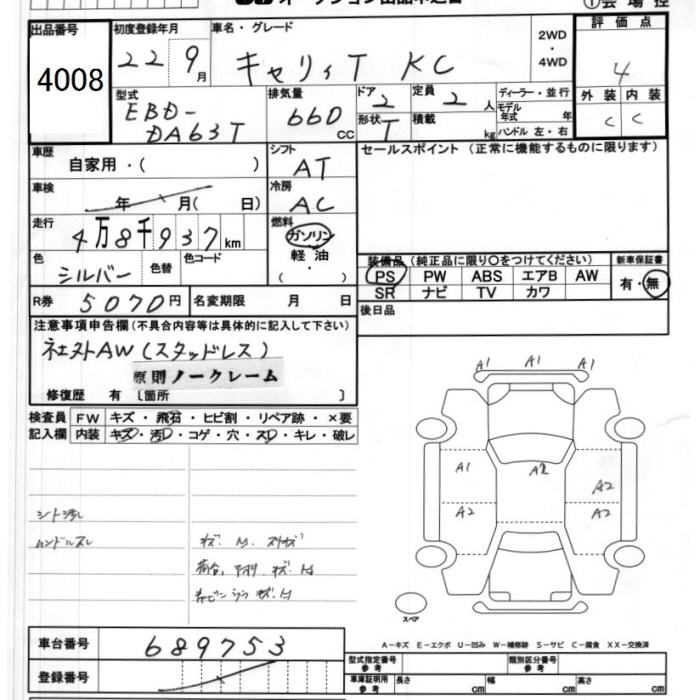 出品番号
4008
初度登録年月
22 9月
車名・グレード
キャリィT KC
2WD
・
4WD
評価点
4
外装 内装
C C
型式
EBD-
DA63T
排気量
660
CC
ドア
2
形状
T
定員
2 人
積載
kg
ディーラー・並行
モデル
年式 年
ハンドル 左・右
車歴
自家用・( )
シフト
AT
セールスポイント (正常に機能するものに限ります)
車検
年 月( 日)
冷房
AC
走行
4万8千937km
燃料
ガソリン
軽油
・
( )
色
シルバー
色替
色コード
装備品 (純正品に限り○をつけてください)
PS PW ABS エアB AW
SR ナビ TV カワ
新車保証書
有・無
R券
5070円
名変期限 月 日
後日品
注意事項申告欄 (不具合内容等は具体的に記入して下さい)
社外AW(スタッドレス)
原則ノークレーム
修復歴 有 〔箇所 〕
検査員
記入欄
FW キズ・飛石・ヒビ割・リペア跡・×要
内装 キズ・汚れ・コゲ・穴・スレ・キレ・破レ
シート汚レ
ハンドルスレ
A1 A1 A1
A1 A2 A2
A2 A2
スペア
A-キズ E-エクボ U-凹み W-補修跡 S-サビ C-腐食 XX-交換済
車台番号
689753
登録番号
型式指定番号
参考
類別区分番号
参考
車庫証明用
参考
長さ cm
幅 cm
高さ cm